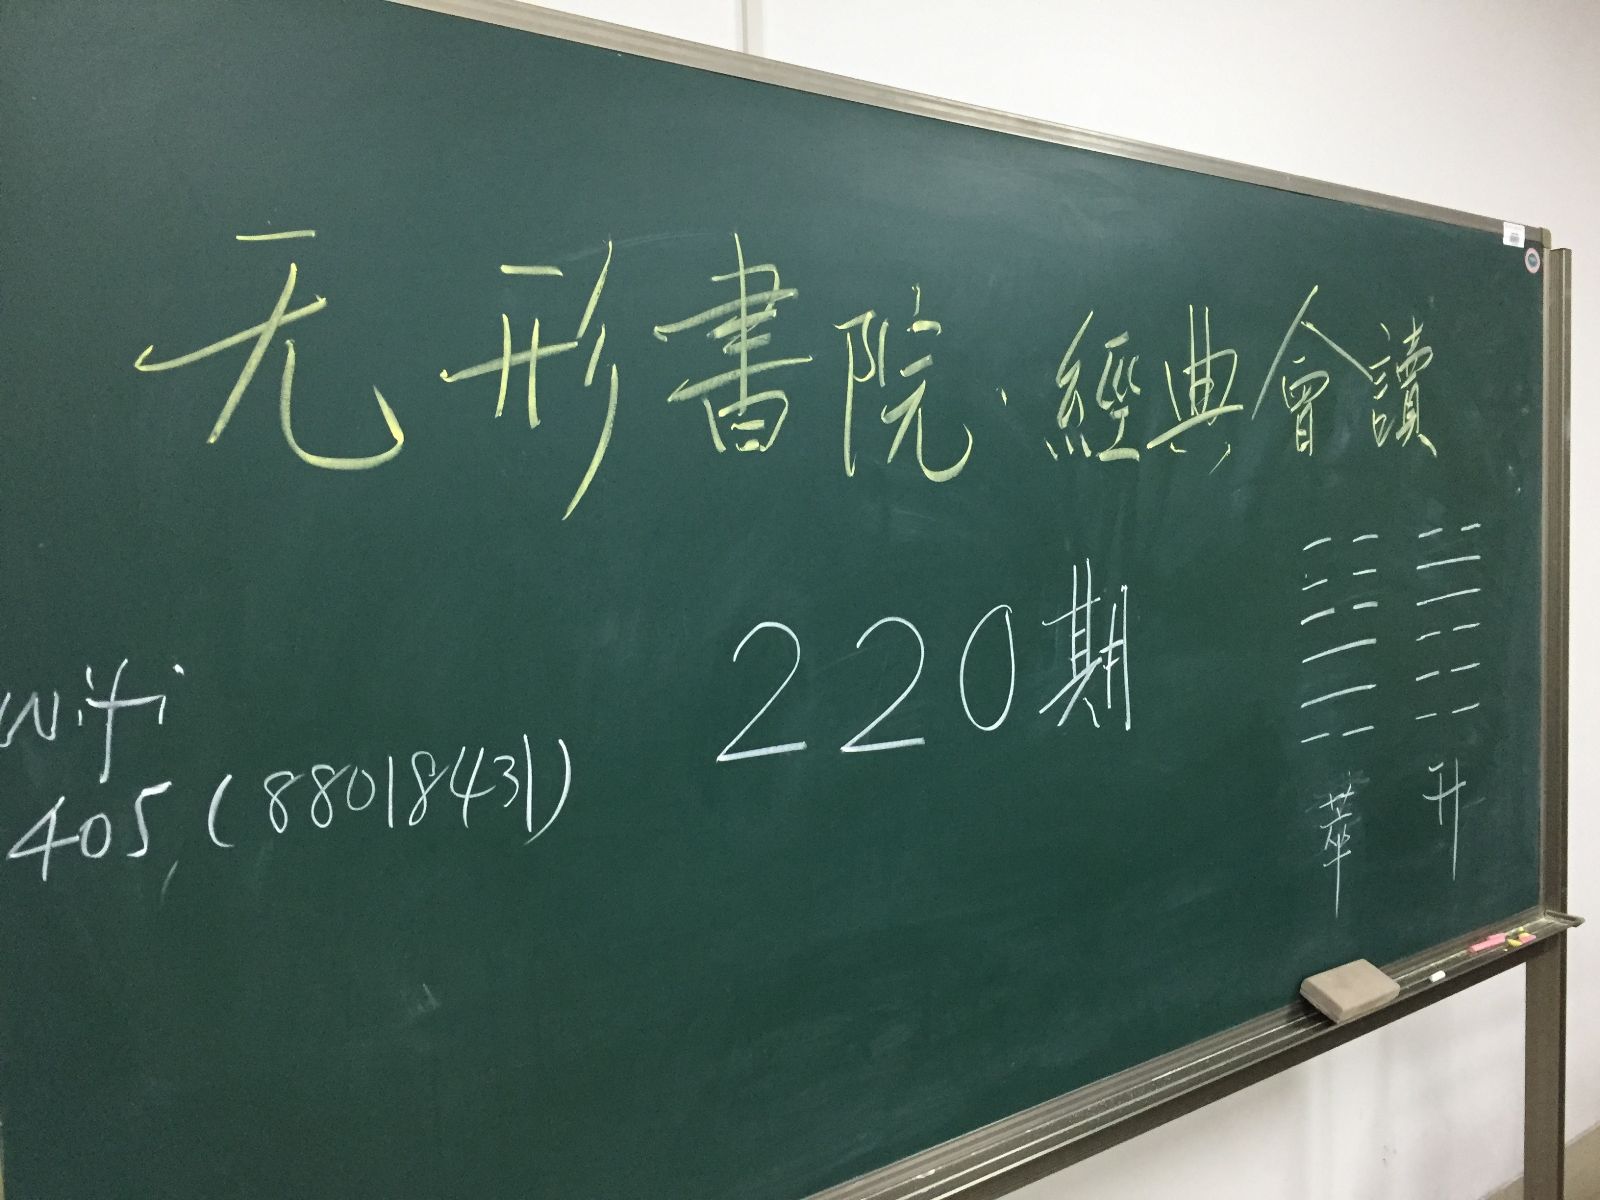 无形書院·經典會讀
220期
wifi
405 (88018431)
萃 升